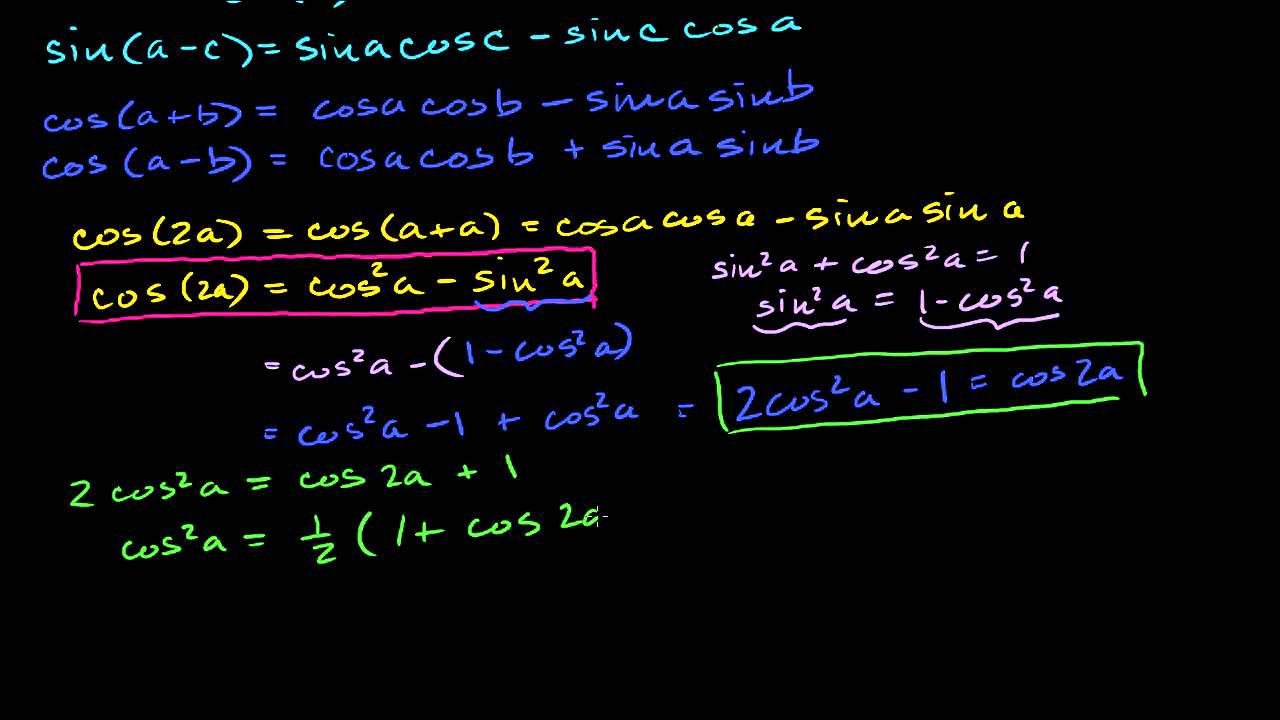 sin(a-c) = sin a cos c - sin c cos a
cos(a+b) = cos a cos b - sin a sin b
cos(a-b) = cos a cos b + sin a sin b
cos(2a) = cos(a+a) = cos a cos a - sin a sin a
cos(2a) = cos²a - sin²a
sin²a + cos²a = 1
sin²a = 1 - cos²a
= cos²a - (1 - cos²a)
= cos²a - 1 + cos²a = 2cos²a - 1 = cos 2a
2 cos²a = cos 2a + 1
cos²a = 1/2 (1 + cos 2a